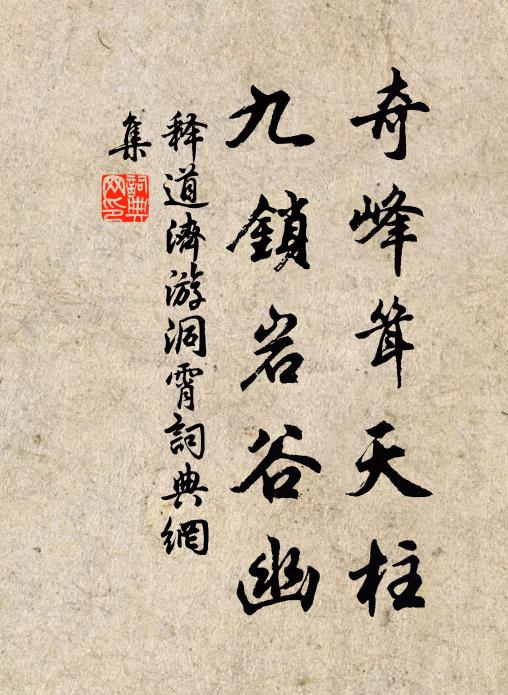 奇峰耸天柱
九鎖岩谷幽
释道濟游洞霄詞典網
集
詞典网印